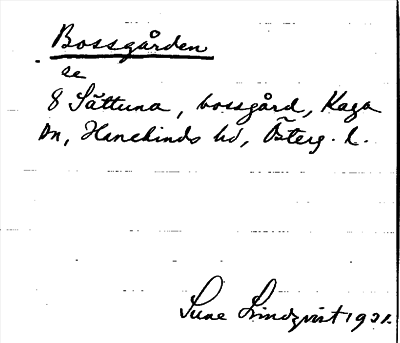 Bossgården
se
8 Sättuna, bossgård, Kaga
sn, Hanekinds hd, Österg. l.
Sune Lindqvist 1921.